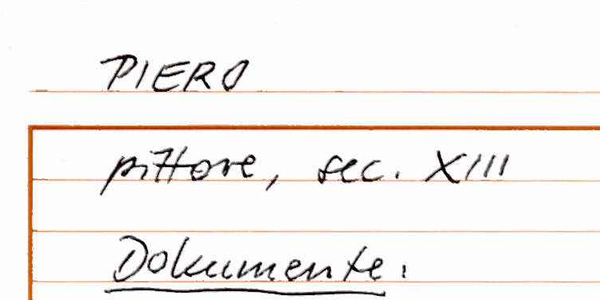 PIERO
pittore, sec. XIII
Dokumente: